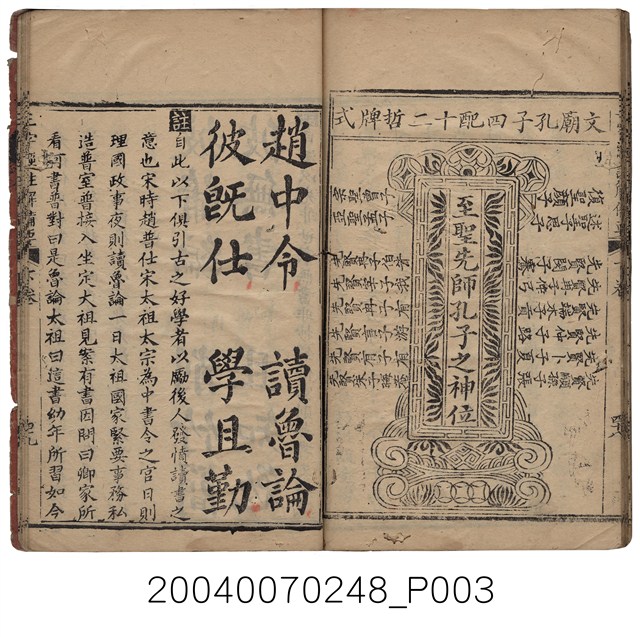 文廟孔子四配十二哲牌式
復聖顏子
述聖子思子
宗聖曾子
亞聖孟子
至聖先師孔子之神位
先賢閔子
先賢冉子
先賢端木子
先賢仲子
先賢卜子
先賢有子
先賢顓孫子
趙中令　讀魯論
彼既仕　學且勤
註自此以下俱引古之好學者以勵後人發憤讀書之
意也宋時趙普仕宋太祖太宗為中書令之官日則
理國政事夜則讀魯論一日太祖國家緊要事務私
造普室普接入坐定大祖見案有書因問曰卿家所
看何書普對曰是魯論太祖曰這書幼年所習如今
三字經註解備要
下卷
20040070248_P003